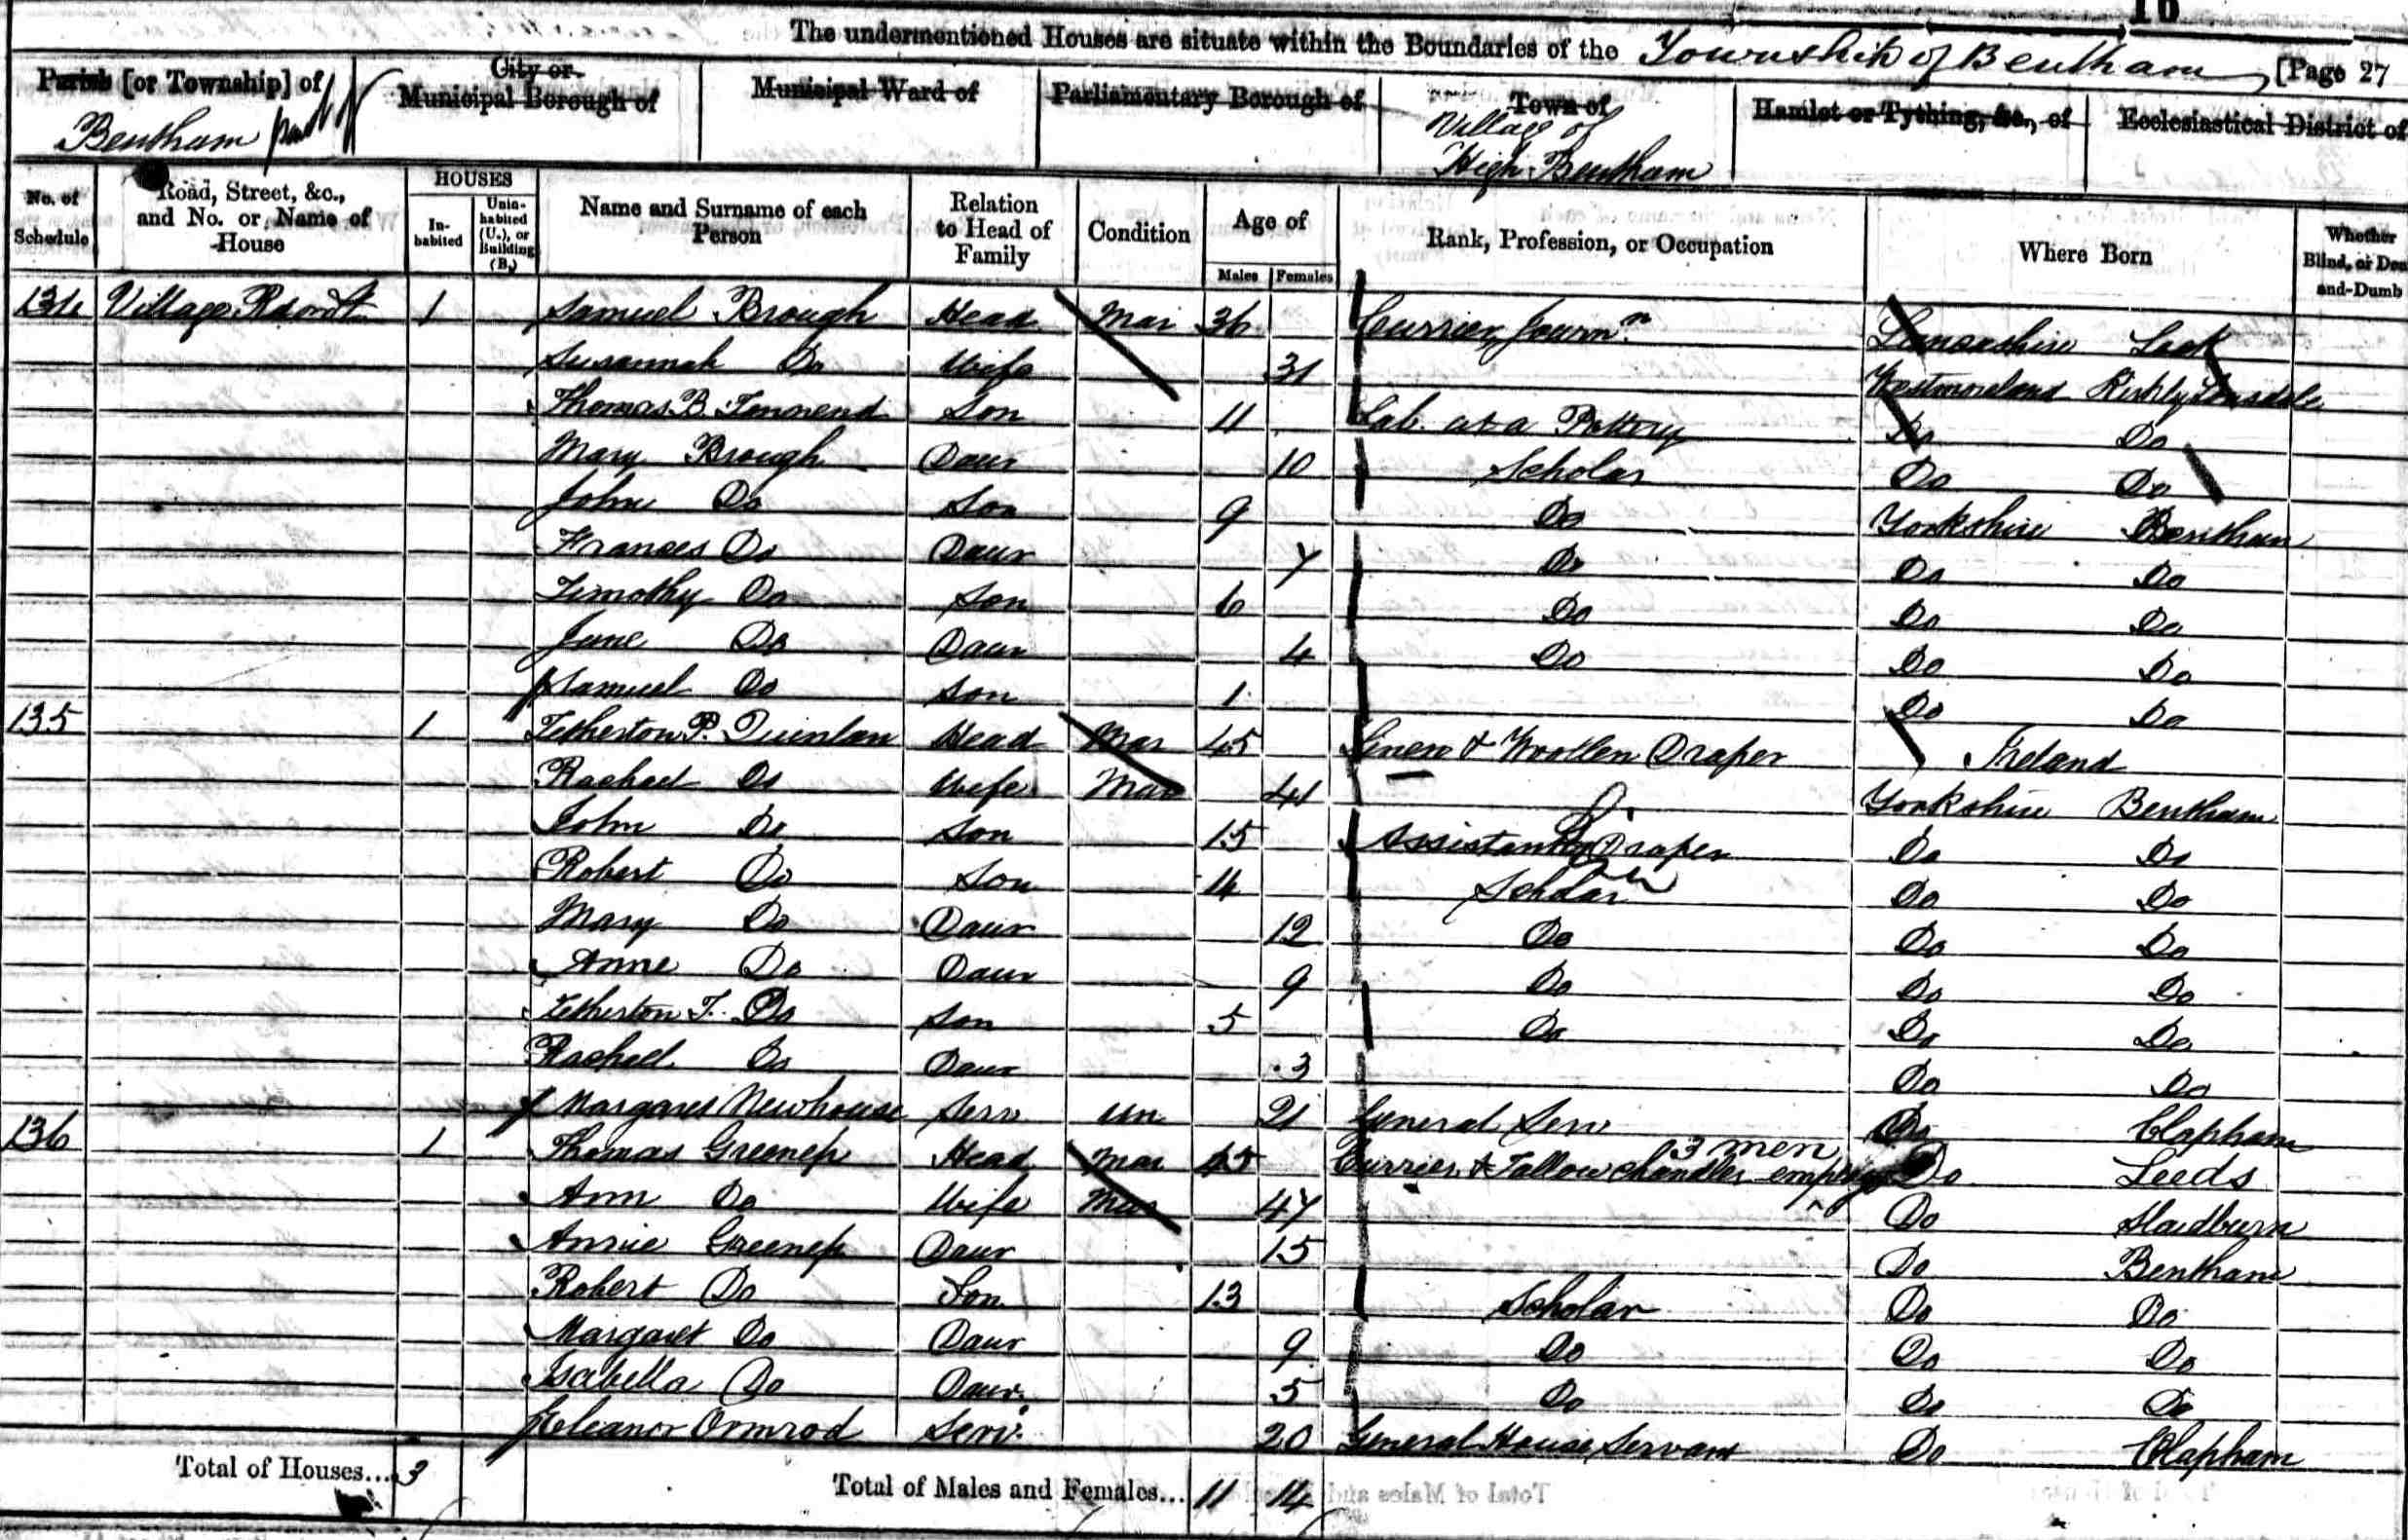 16
The undermentioned Houses are situate within the Boundaries of the Township of Bentham [Page 27
Parish [or Township] of Bentham part of
City or Municipal Borough of
Municipal Ward of
Parliamentary Borough of
Town of Village of High Bentham
Hamlet or Tything, &c., of
Ecclesiastical District of
No. of Schedule
Road, Street, &c., and No. or Name of House
HOUSES
In-habited
Unin-habited (U.), or Building (B.)
Name and Surname of each Person
Relation to Head of Family
Condition
Age of
Males Females
Rank, Profession, or Occupation
Where Born
Whether Blind, or Deaf-and-Dumb
134 Village 1 Samuel Brough Head Mar 36 Currier Journ.n
Susannah Do Wife 31 Westmoreland Kirkby Lonsdale
Thomas B. Townend Son 11 Lab. at a Pottery Do Do
Mary Brough Daur 10 Scholar Do Do
John Do Son 9 Do Yorkshire Bentham
Frances Do Daur 7 Do Do Do
Timothy Do Son 6 Do Do Do
Jane Do Daur 4 Do Do Do
Samuel Do Son 1 Do Do
135 1 Tetherton P. Quinlan Head Mar 45 Linen & Woollen Draper Ireland
Rachael Do Wife Mar 41 Yorkshire Bentham
John Do Son 15 Assistant Draper Do Do
Robert Do Son 14 Scholar Do Do
Mary Do Daur 12 Do Do Do
Anne Do Daur 9 Do Do Do
Tetherton T. Do Son 5 Do Do Do
Rachell Do Daur 3 Do Do
Margaret Newhouse Serv Un 21 General Serv Do Clapham
136 1 Thomas Greenep Head Mar 45 Currier & Tallow chandler employ 3 men Do Leeds
Ann Do Wife Mar 47 Do Slaidburn
Annie Greenep Daur 15 Do Bentham
Robert Do Son 13 Scholar Do Do
Margaret Do Daur 9 Do Do Do
Isabella Do Daur. 5 Do Do Do
Eleanor Ormrod Serv. 20 General House Servant Do Clapham
Total of Houses... 3
Total of Males and Females... 11 14